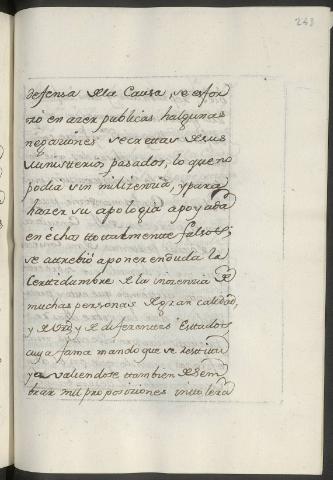 243
defensa de la Causa, se esfor
zó en azer publicas halgunas
negaziones secrettas de sus
ministterios pasados, lo que no
podia sin milizencia, y para
hazer su apologia apoyada
en échos ttotalmente falsos
se attrebió aponer en duda la
Certtidumbre de la inozencia de
muchas personas de gran calidad,
y de Orn y de diferentes Esttados,
cuya fama mando que se resttitu
ya valiendose ttambien de sem
brar mil proposiziones inttolera